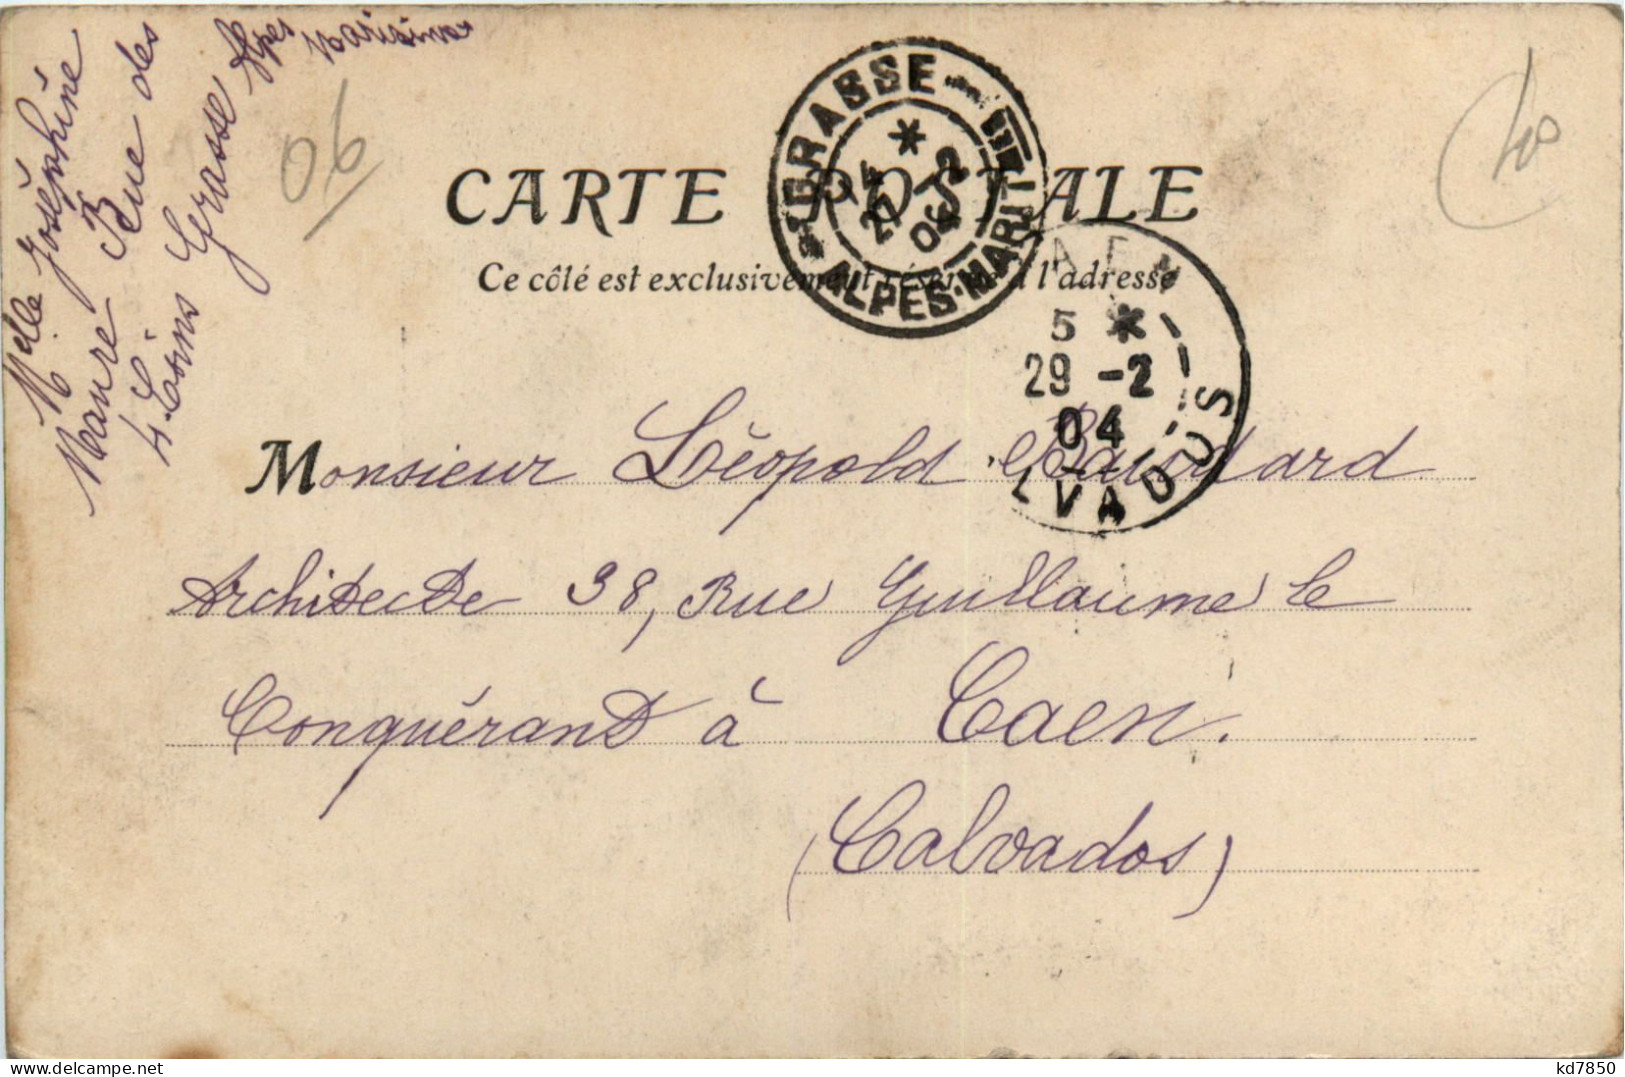 Melle Joséphine
Maure Rue des
4 Coins Grasse Alpes
Maritimes
06
CARTE POSTALE
Ce côté est exclusivement réservé à l'adresse
GRASSE
*
27 -2
04
ALPES-MARITMES
5 *
29 -2
04
CALVADOS
Monsieur Léopold
Architecte 38, Rue Guillaume le
Conquérant à Caen.
(Calvados)
kd7850